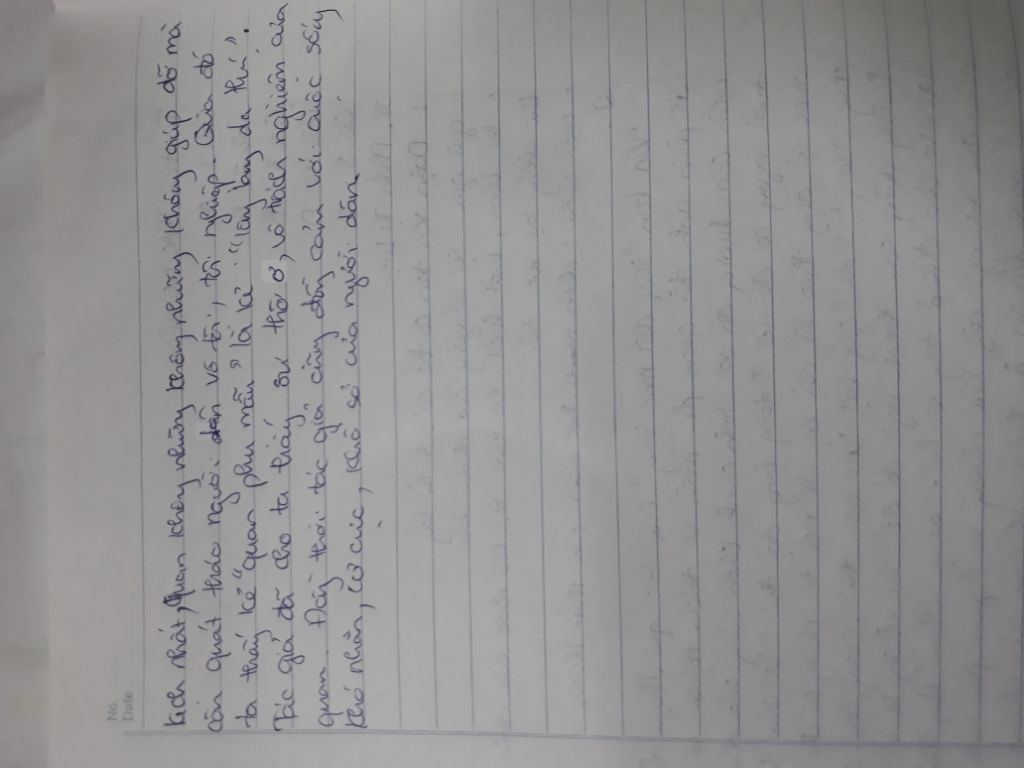 No.
Date
kịch nhất, Quan không những không những không giúp đỡ mà
còn quát tháo người dân vô tội, tội nghiệp. Qua đó
ta thấy kẻ "quan phụ mẫu" là kẻ "lòng lang dạ thú".
Tác giả đã cho ta thấy sự thờ ơ, vô trách nghiệm của
quan. Đồng thời tác giả cũng đồng cảm với cuộc sống
khó nhằn, cơ cực, khổ sở của người dân.